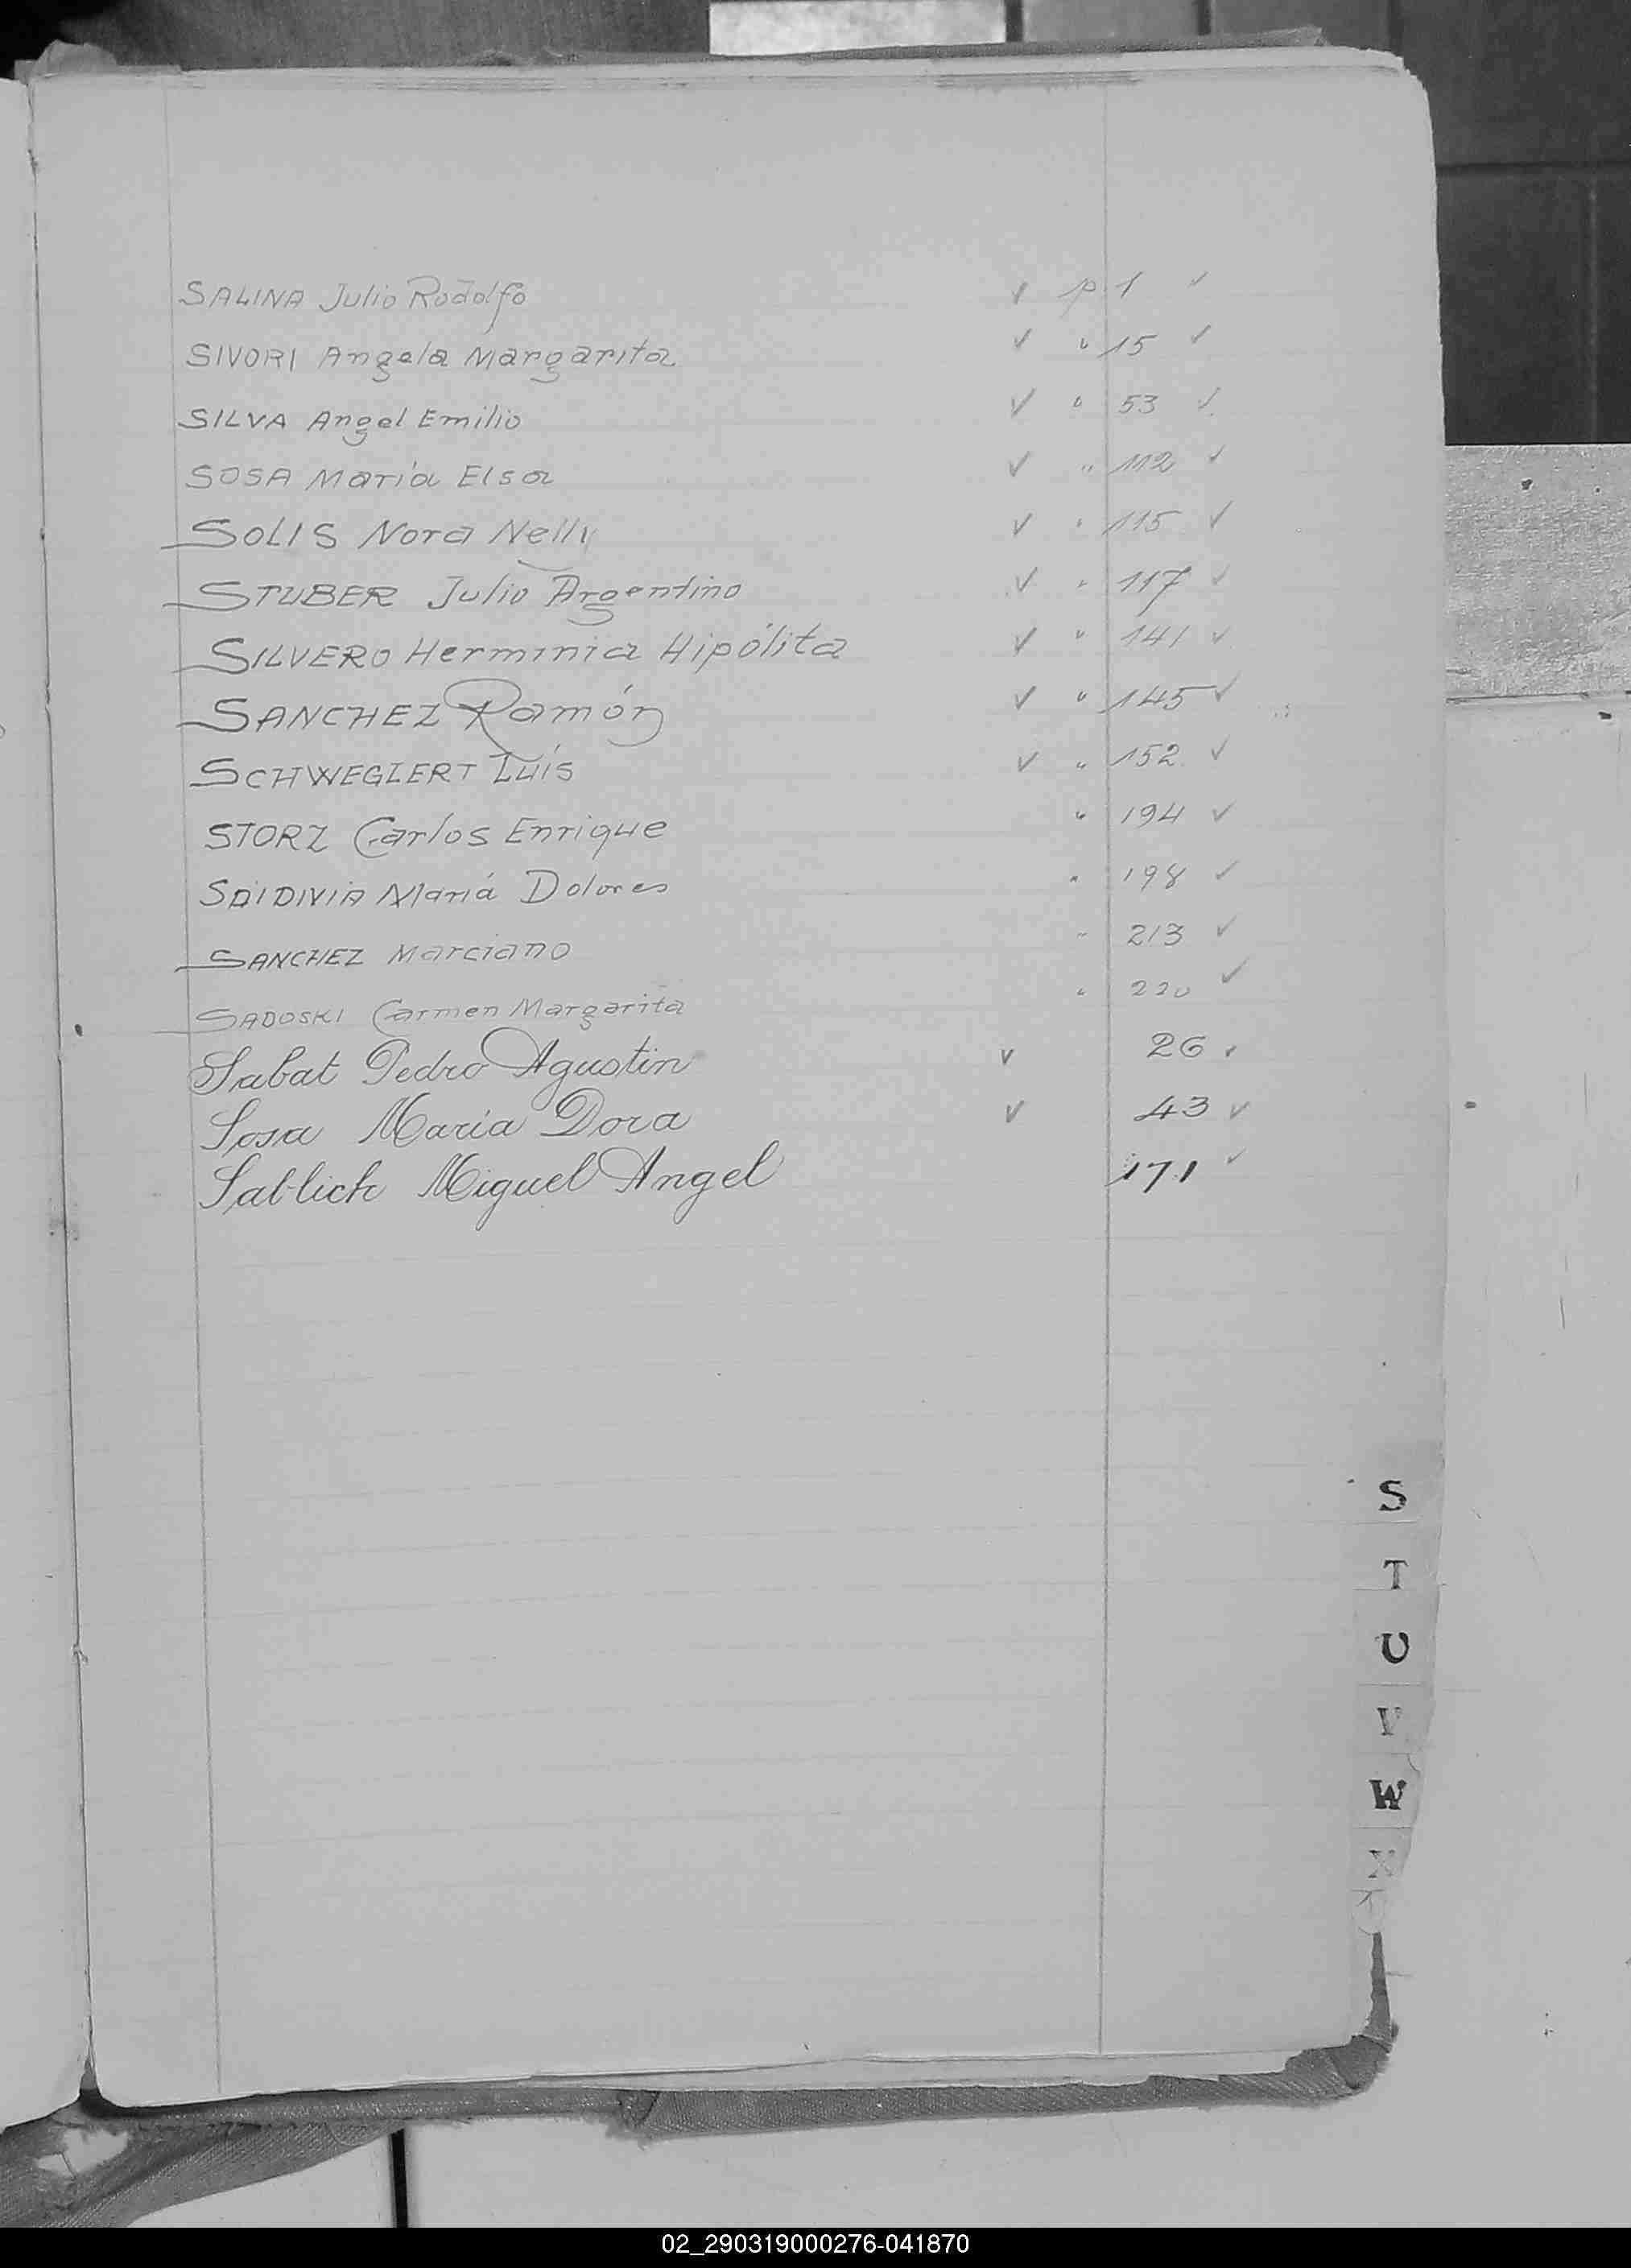 SALINA Julio Rodolfo ✓ p 1 ✓
SIVORI Angela Margarita ✓ " 15 ✓
SILVA Angel Emilio ✓ " 53 ✓
SOSA María Elsa ✓ " 112 ✓
SOLIS Nora Nelly ✓ " 115 ✓
STUBER Julio Argentino ✓ " 117 ✓
SILVERO Herminia Hipólita ✓ " 141 ✓
SANCHEZ Ramón ✓ " 145 ✓
SCHWEGLERT Luis ✓ " 152 ✓
STORZ Carlos Enrique " 194 ✓
María Dolores " 198 ✓
SANCHEZ Marciano " 213 ✓
SADOSKI Carmen Margarita " 220 ✓
Sabat Pedro Agustin ✓ 26 ✓
Sosa María Dora ✓ 43 ✓
Sablich Miguel Angel 171 ✓
S
T
U
V
W
X
02_290319000276-041870